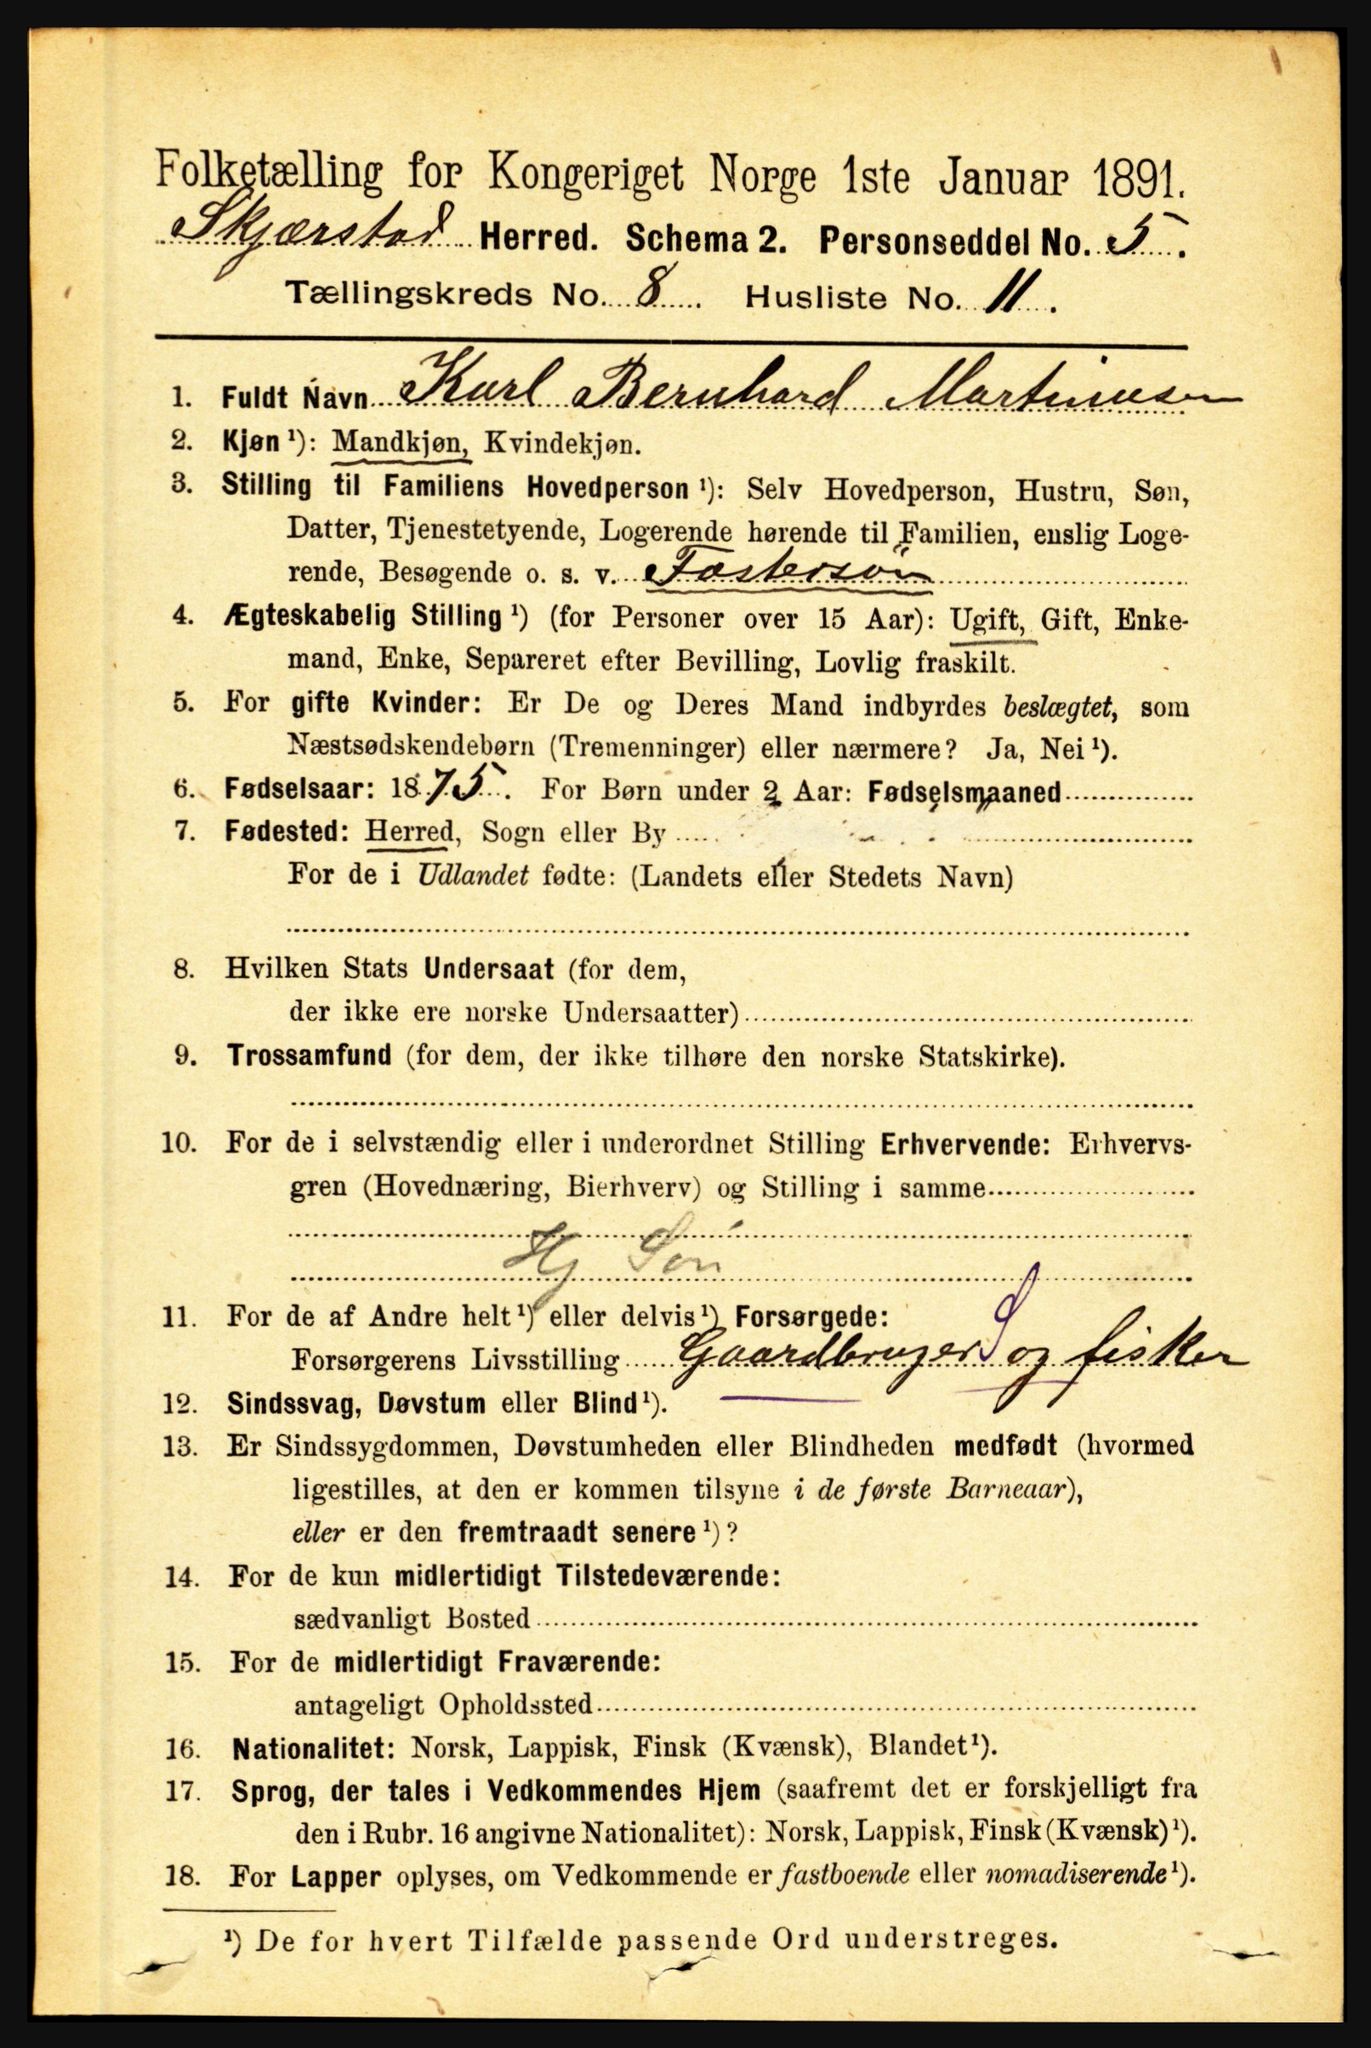 Folketælling for Kongeriget Norge 1ste Januar 1891.
Skjærstad Herred. Schema 2. Personseddel No. 5.
Tællingskreds No. 8. Husliste No. 11.
1. Fuldt Navn Karl Bernhard Martinusen
2. Kjøn ¹): Mandkjøn, Kvindekjøn.
3. Stilling til Familiens Hovedperson ¹): Selv Hovedperson, Hustru, Søn,
Datter, Tjenestetyende, Logerende hørende til Familien, enslig Loge-
rende, Besøgende o. s. v. Fostersøn
4. Ægteskabelig Stilling ¹) (for Personer over 15 Aar): Ugift, Gift, Enke-
mand, Enke, Separeret efter Bevilling, Lovlig fraskilt.
5. For gifte Kvinder: Er De og Deres Mand indbyrdes beslægtet, som
Næstsødskendebørn (Tremenninger) eller nærmere? Ja, Nei ¹).
6. Fødselsaar: 1875. For Børn under 2 Aar: Fødselsmaaned
7. Fødested: Herred, Sogn eller By
For de i Udlandet fødte: (Landets eller Stedets Navn)
8. Hvilken Stats Undersaat (for dem,
der ikke ere norske Undersaatter)
9. Trossamfund (for dem, der ikke tilhøre den norske Statskirke).
10. For de i selvstændig eller i underordnet Stilling Erhvervende: Erhvervs-
gren (Hovednæring, Bierhverv) og Stilling i samme
Hj Søn
11. For de af Andre helt ¹) eller delvis ¹) Forsørgede: S
Forsørgerens Livsstilling Gaardbruger og fisker
12. Sindssvag, Døvstum eller Blind ¹).
13. Er Sindssygdommen, Døvstumheden eller Blindheden medfødt (hvormed
ligestilles, at den er kommen tilsyne i de første Barneaar),
eller er den fremtraadt senere ¹)?
14. For de kun midlertidigt Tilstedeværende:
sædvanligt Bosted
15. For de midlertidigt Fraværende:
antageligt Opholdssted
16. Nationalitet: Norsk, Lappisk, Finsk (Kvænsk), Blandet ¹).
17. Sprog, der tales i Vedkommendes Hjem (saafremt det er forskjelligt fra
den i Rubr. 16 angivne Nationalitet): Norsk, Lappisk, Finsk (Kvænsk) ¹).
18. For Lapper oplyses, om Vedkommende er fastboende eller nomadiserende ¹).
¹) De for hvert Tilfælde passende Ord understreges.